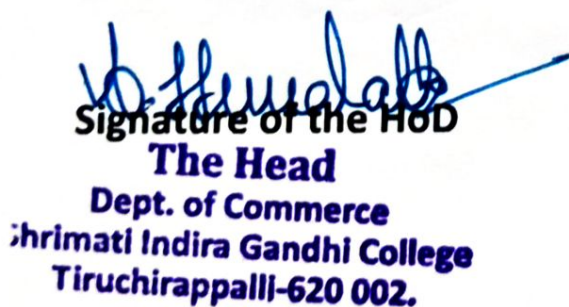 Signature of the HoD
The Head
Dept. of Commerce
hrimati Indira Gandhi College
Tiruchirappalli-620 002.